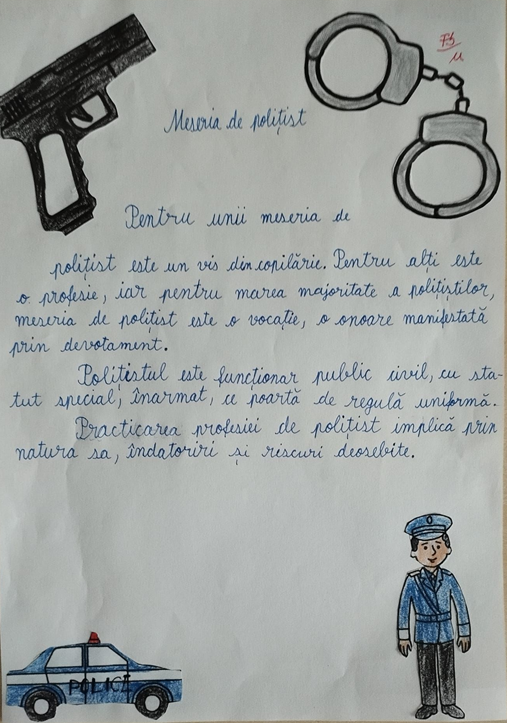 FB
Meseria de polițist
Pentru unii meseria de
polițist este un vis din copilărie. Pentru alți este
o profesie, iar pentru marea majoritate a polițiștilor,
meseria de polițist este o vocație, o onoare manifestată
prin devotament.
Polițistul este funcționar public civil, cu sta-
tut special, înarmat, ce poartă de regulă uniformă.
Practicarea profesiei de polițist implică prin
natura sa, îndatoriri și riscuri deosebite.
POLICE